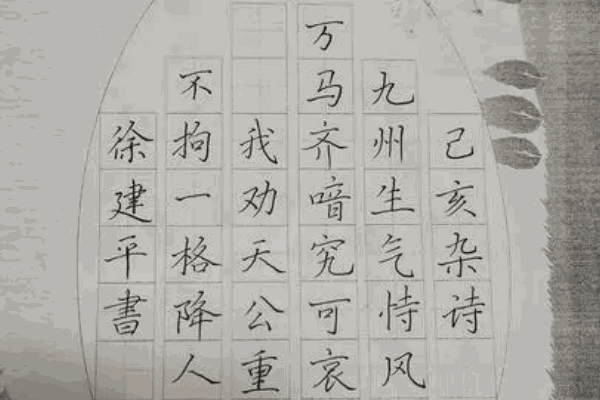 己亥杂诗
九州生气恃风
万马齐喑究可哀
我劝天公重
不拘一格降人
徐建平書